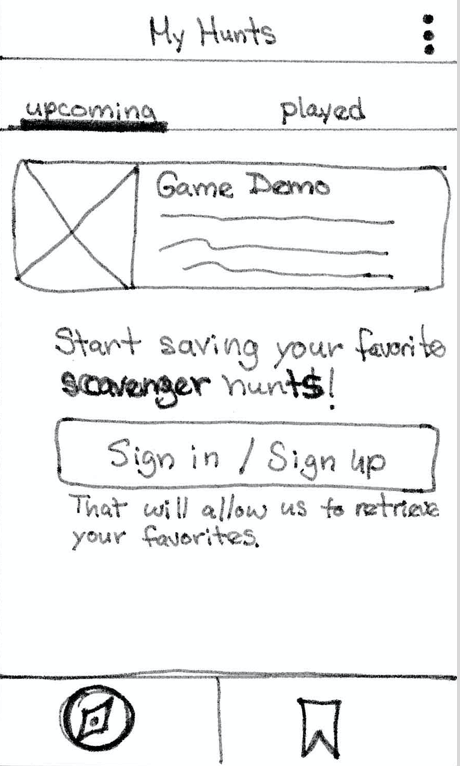 My Hunts
upcoming
played
Game Demo
Start saving your favorite
scavenger hunts!
Sign in / Sign up
That will allow us to retrieve
your favorites.